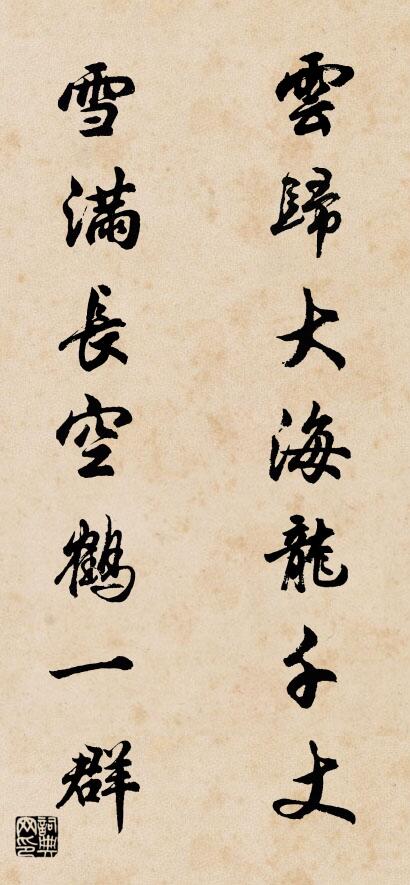 雲歸大海龍千丈
雪滿長空鶴一群
詞典網印